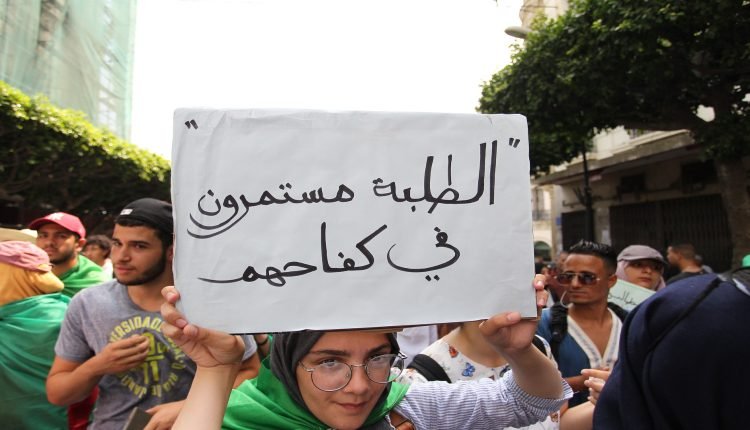 "الطلبة مستمرون
في كفاحهم"
UNIVERSIDADE